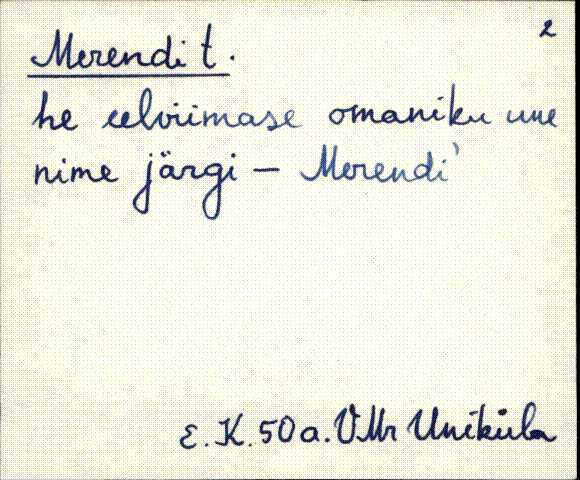 2
Merendi t.
he eelviimase omaniku une
nime järgi – Merendi'
E. K. 50 a. VMr Uniküla